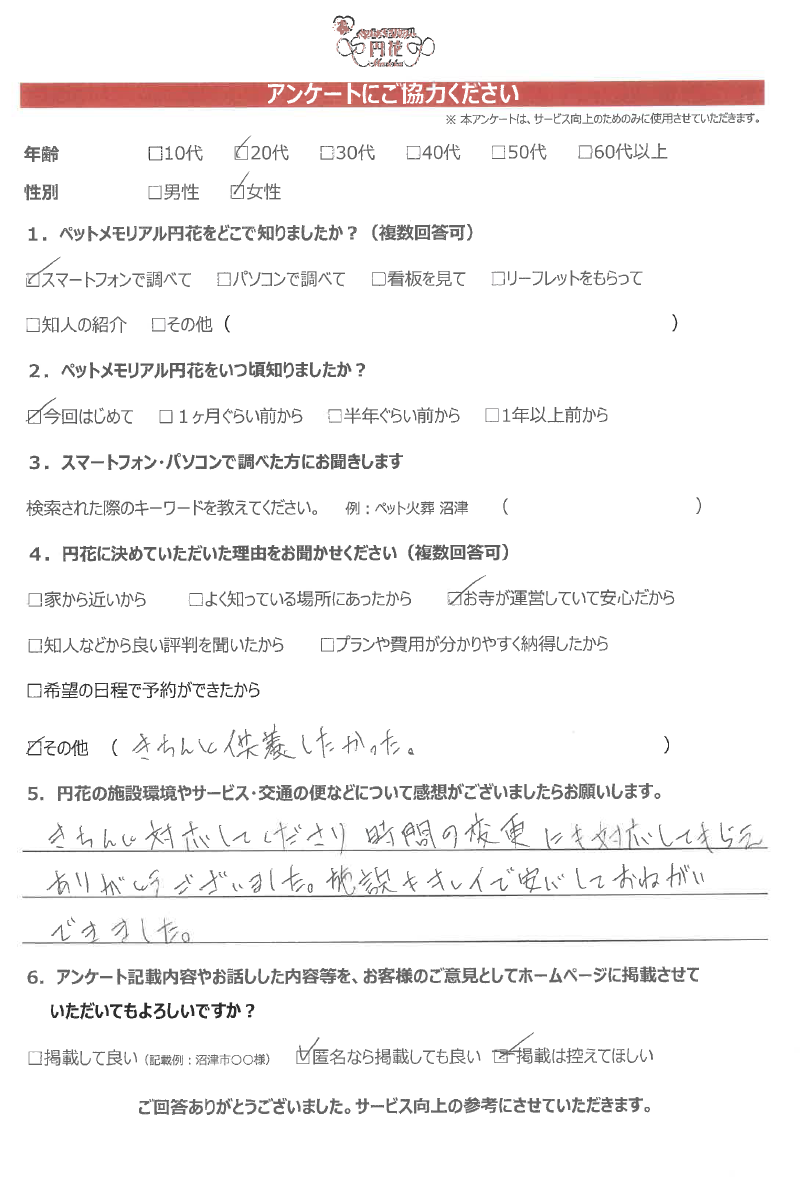 ペットメモリアル
円花
Madoka
アンケートにご協力ください
※ 本アンケートは、サービス向上のためのみに使用させていただきます。
年齢 □10代 ☑20代 □30代 □40代 □50代 □60代以上
性別 □男性 ☑女性
1．ペットメモリアル円花をどこで知りましたか？（複数回答可）
☑スマートフォンで調べて □パソコンで調べて □看板を見て □リーフレットをもらって
□知人の紹介 □その他（ ）
2．ペットメモリアル円花をいつ頃知りましたか？
☑今回はじめて □1ヶ月ぐらい前から □半年ぐらい前から □1年以上前から
3．スマートフォン・パソコンで調べた方にお聞きします
検索された際のキーワードを教えてください。 例：ペット火葬 沼津 （ ）
4．円花に決めていただいた理由をお聞かせください（複数回答可）
□家から近いから □よく知っている場所にあったから ☑お寺が運営していて安心だから
□知人などから良い評判を聞いたから □プランや費用が分かりやすく納得したから
□希望の日程で予約ができたから
☑その他 （ きちんと供養したかった。 ）
5．円花の施設環境やサービス・交通の便などについて感想がございましたらお願いします。
きちんと対応してくださり 時間の変更にも対応してもらえ
ありがとうございました。施設もキレイで安心しておねがい
できました。
6．アンケート記載内容やお話しした内容等を、お客様のご意見としてホームページに掲載させて
いただいてもよろしいですか？
□掲載して良い（記載例：沼津市〇〇様） ☑匿名なら掲載しても良い ☑掲載は控えてほしい
ご回答ありがとうございました。サービス向上の参考にさせていただきます。